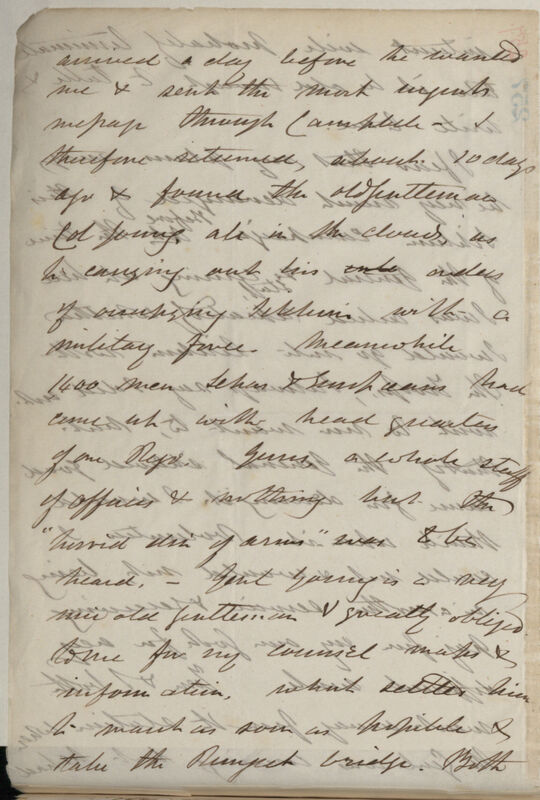 arrived a day before he wanted
me & sent the most urgent
message through Campbell - I
therefore returned, about 10 days
ago & found the old gentleman
(Gl Young) all in the clouds as
to carrying out his orders
of occupying Sikkim with a
military force. Meanwhile
1400 men, Sepoys & Europeans had
come up with head quarters
of one Regt. Guns, a whole staff
of officers & nothing but the
"horrid din of arms" was to be
heard. - Genl Young is a very
nice old gentleman & greatly obliged
to me for my counsel maps &
information. what settles him
to march as soon as possible &
take the Rungeet bridge. Both